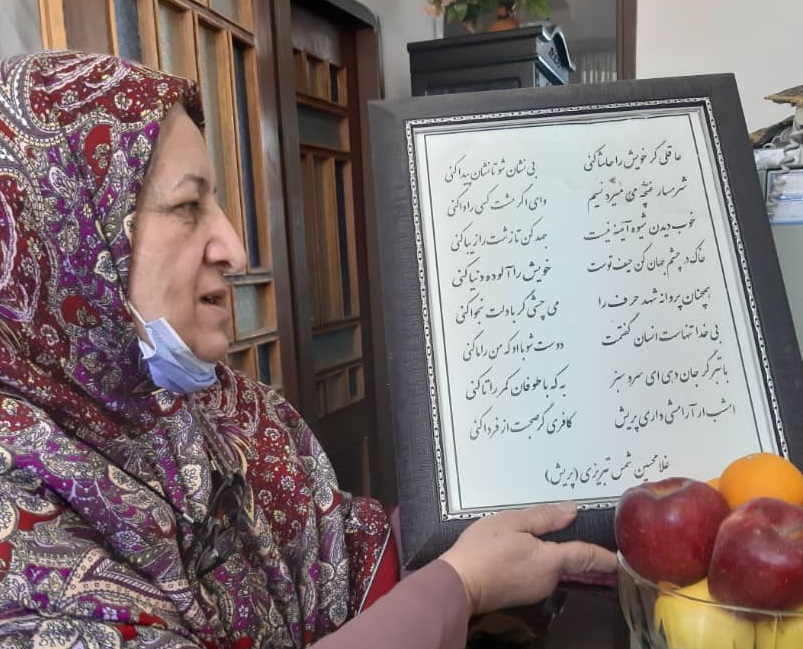 عاقلی گر خویش را حاشا کنی بی نشان شو تا نشان پیدا کنی
شرمسار غنچه می میرد نسیم وای اگر مشت کسی را وا کنی
خوب دیدن شیوه آئینه نیست جهد کن تا زشت را زیبا کنی
خاک در چشم جهان کن حیف توست خویش را آلوده دنیا کنی
همچنان پروانه شهد حرف را می چشی گر با دلت نجوا کنی
بی خدا تنهاست انسان گفتمت دوست شو با او که من را ما کنی
با تبر گر جان دهی ای سرو سبز به که با طوفان کمر را تا کنی
امشب ار آرامشی داری پریش کافری گر صحبت از فردا کنی
غلامحسین شمس تبریزی (پریش)